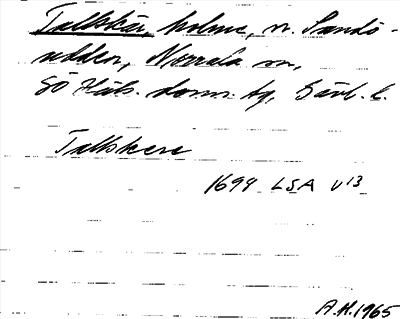 Tallskär, holme, n. Sandö-
udden, Norrala sn,
Sö Häls. doms. tg, Gävl. l.
Tallskere
1694 LSA U13
A.H. 1965